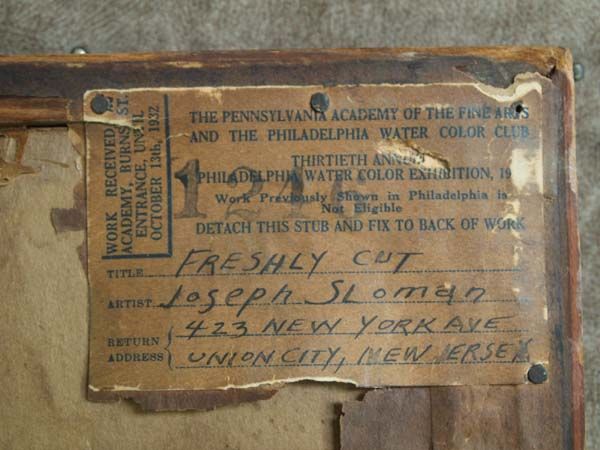 WORK RECEIVED,
ACADEMY, BURNS ST.
ENTRANCE, UNTIL
OCTOBER 13th, 1932
THE PENNSYLVANIA ACADEMY OF THE FINE ARTS
AND THE PHILADELPHIA WATER COLOR CLUB
THIRTIETH
PHILADELPHIA WATER COLOR EXHIBITION, 19
Work Previously Shown in Philadelphia is
Not Eligible
DETACH THIS STUB AND FIX TO BACK OF WORK
TITLE FRESHLY CUT
ARTIST Joseph SLoman
RETURN ADDRESS 423 NEW YORK AVE
UNION CITY, NEW JERSEY